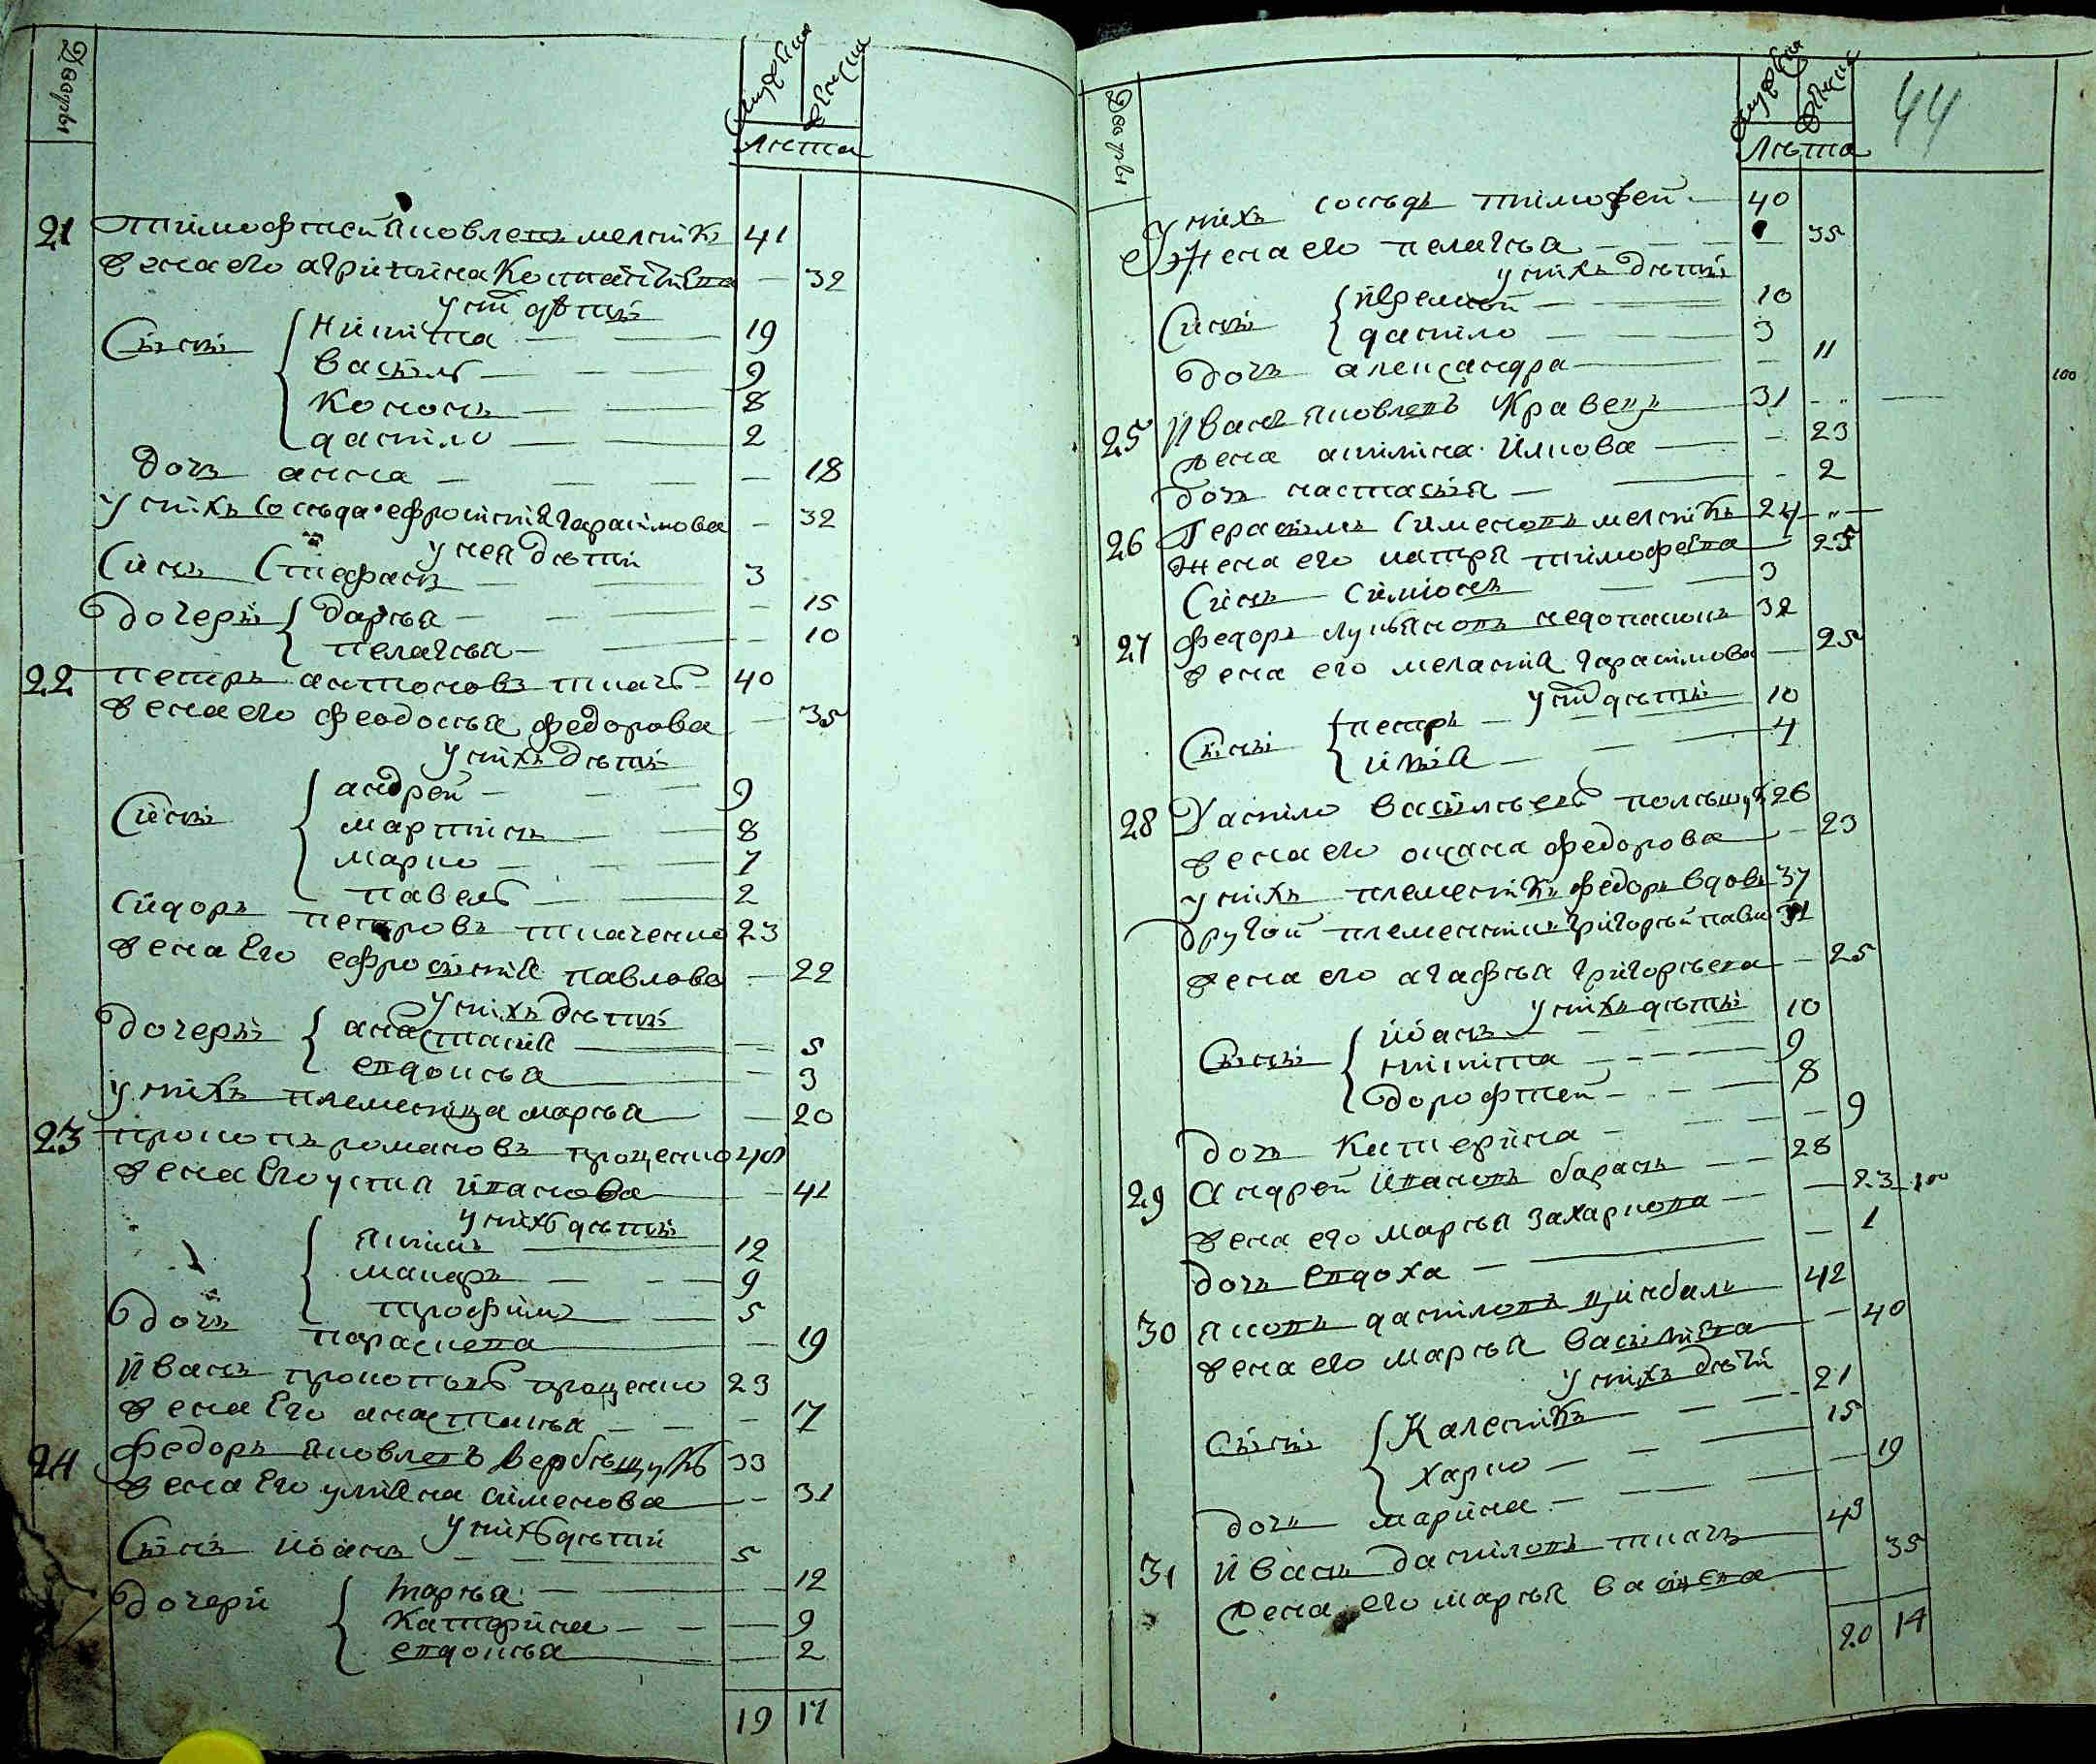 Дворы
мужеска
женска
Лета
21 Тимофтей Яковлевъ мелникъ 41
жена его агрипина Костантиева — 32
у них дети
Сыны Никита — 19
василь — 9
Кононъ — 8
данило — 2
дочь анна — 18
у нихъ соседа ефросиния гарасимова — 32
у нея дети
Синъ Стефанъ — 3
дочери дарья — 15
пелагея — 10
22 петръ антоновъ ткачь 40
жена его феодосья федорова — 35
у нихъ дети
Сины андрей — 9
мартинъ — 8
марко — 7
павелъ — 2
Сидоръ петровъ ткаченко 23
жена его ефросиния павлова — 22
у нихъ дети
дочери анастасия — 5
евдокия — 3
у нихъ племеница марья — 20
23 прокопъ романовъ проценко 45
жена его устия иванова — 41
у нихъ дети
якимъ — 12
макаръ — 9
трофимъ — 5
дочь параскева — 19
Иванъ прокопьевъ проценко 23
жена его анастасья — 17
24 федоръ яковлевъ вербицкъ 33
жена его улияна сименова — 31
у нихъ дети
Синъ иоанъ — 5
дочери марья — 12
катерина — 9
евдокия — 2
19 17
Дворы
мужеска
женска
Лета
44
у нихъ соседъ тимофей — 40
жена его пелагея — 35
у нихъ дети
Сины иеремей — 10
данило — 3
дочь александра — 11
25 Иванъ яковлевъ Кравецъ 31
жена акилина илкова — 23
дочь настасия — 2
26 Герасимъ сименовъ мелникъ 24
жена его мотря тимофеева 25
Синъ симионъ — 3
27 федоръ лукьяновъ недопакинъ 32
жена его мелания гарасимова — 25
у них дети
Сины петръ — 10
илия — 4
28 Данило васильевъ полищукъ 26
жена его оксана федорова — 23
у нихъ племеникъ федоръ вдовъ 37
другой племеникъ григорий павл 31
жена его агафья григорьева — 25
у нихъ дети
Сины иоанъ — 10
никита — 9
дорофтей — 8
дочь катерина — 9
29 андрей ивановъ баранъ — 28
жена его марья захаркова — 23
дочь евдоха — 1
30 яковъ даниловъ цимбалъ 42
жена его марья василиева — 40
у нихъ дети
Сини Каленикъ — 21
харко — 15
дочь марина — 19
31 Иванъ даниловъ ткачъ 43
жена его марья васиева 35
20 14